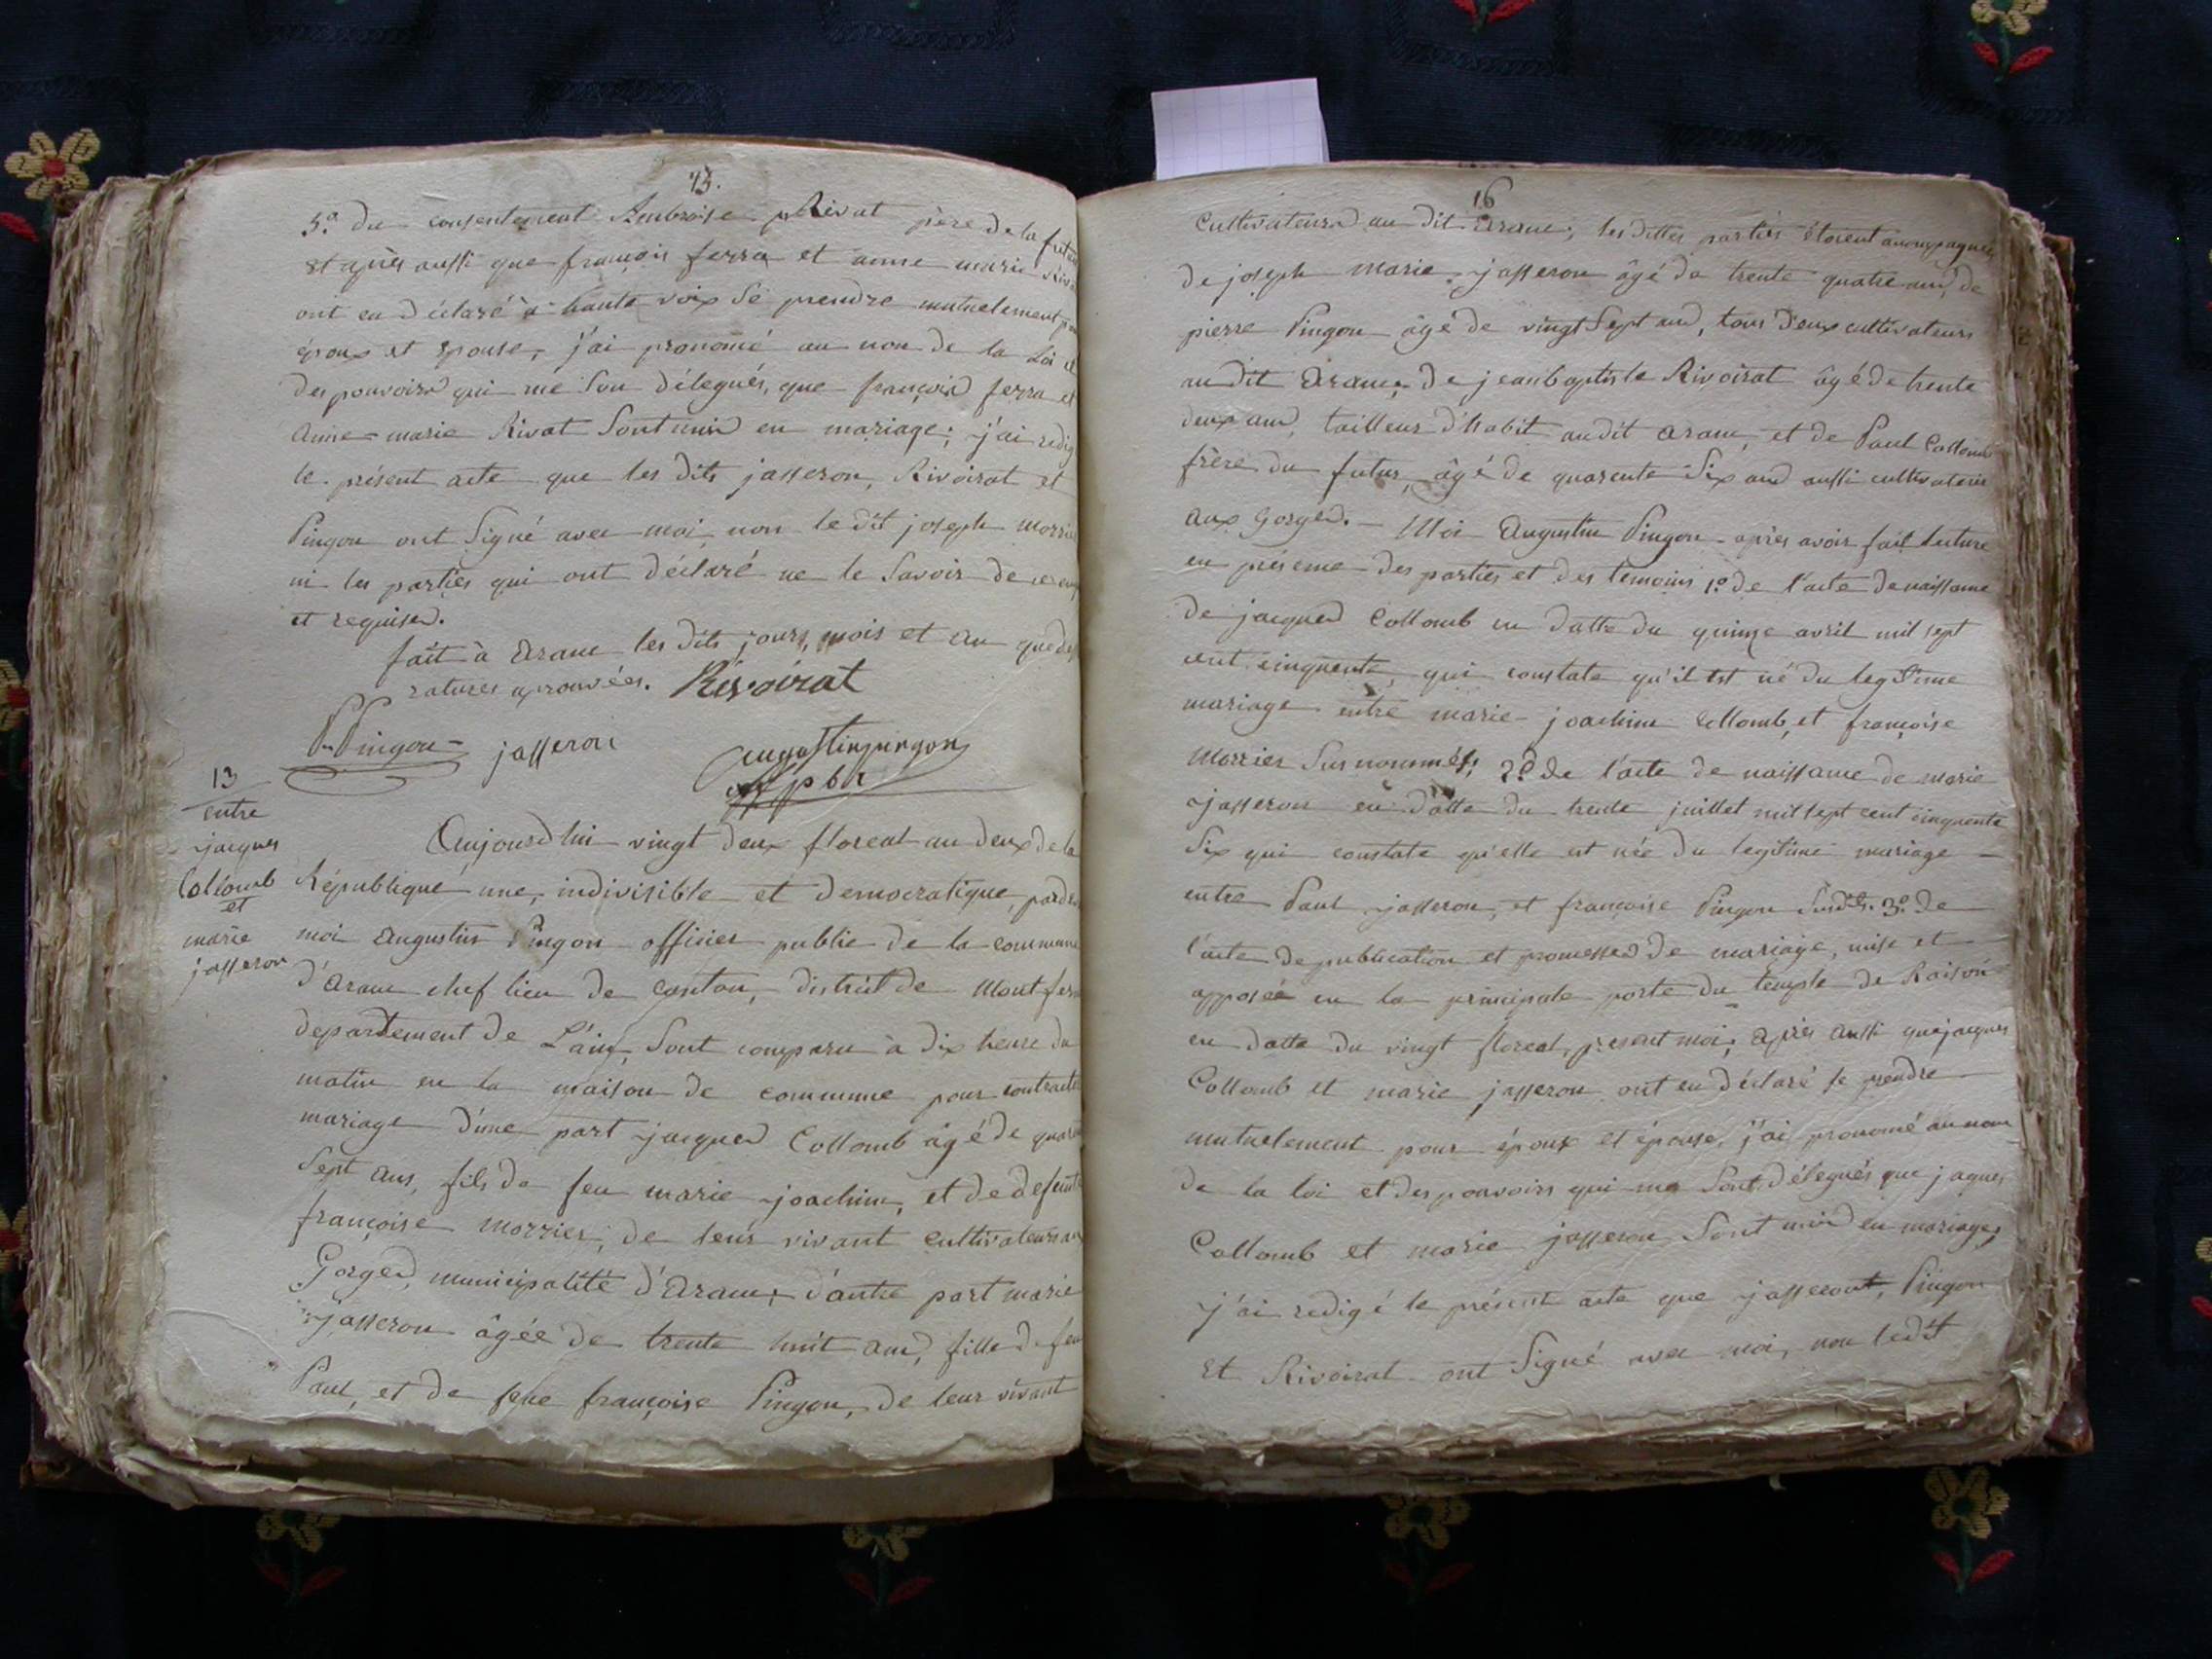 15.
5.º du consentement Ambroise Rivat père de la
Et après aussi que françois ferra et anne marie
ont eu déclaré à haute voix se prendre mutuelement
époux et épouse, j'ai prononcé au nom de la Loi et
des pouvoirs qui me son délegués, que françois ferra et
anne-marie Rivat sont unis en mariage; j'ai
le présent acte que les dits jasseron, Rivoirat et
Pingon ont signé avec moi, non le dit joseph
ni les parties qui ont déclaré ne le savoir de ce
et requises.
fait à aranc les dits jours, mois et an que
ratures aprouvées. Rivoirat
Pingon jasseron augustin pingon
off pbli
13
entre
jacques
Collomb
et
marie
jasseron
Aujourd'hui vingt deux floreal an deux de la
République une, indivisible et democratique,
moi augustin Pingon officier public de la commune
d'aranc chef lieu de canton, district de Mont
departement de L'ain, sont comparu à dix heure du
matin en la maison de commune pour contracter
mariage d'une part jacques Collomb âgé de
sept ans, fils de feu marie joachim, et de defunte
françoise morrier, de leur vivant cultivateurs
Gorges, municipalité d'aranc; d'autre part marie
jasseron âgée de trente huit ans, fille de feu
Paul, et de feue françoise Pingon, de leur vivant
16
Cultivateurs au dit aranc; les dittes parties étoient
de joseph marie jasseron âgé de trente quatre ans, de
pierre Pingon âgé de vingt sept ans, tous deux cultivateurs
au dit aranc; de jeanbaptiste Rivoirat âgé de trente
deux ans, tailleur d'habit audit aranc, et de Paul Collomb
frère du futur, âgé de quarente six ans aussi cultivateur
aux gorges. - Moi Augustin Pingon après avoir fait lecture
en présence des parties et des témoins 1.º de l'acte de naissance
de jacques Collomb en datte du quinze avril mil sept
cent cinquente, qui constate qu'il est né du legitime
mariage entre marie joachim Collomb, et françoise
Morrier surnommés; 2.º de l'acte de naissance de marie
jasseron en datte du trente juillet mil sept cent cinquente
six qui constate qu'elle est née du legitime mariage
entre Paul jasseron, et françoise Pingon susdts. 3.º de
l'acte de publication et promesses de mariage, mise et
apposée en la principale porte du temple de Raison
en datte du vingt floreal, present moi; après aussi que jacques
Collomb et marie jasseron ont eu déclaré se prendre
mutuelement pour époux et épouse, j'ai prononcé au nom
de la loi et des pouvoirs qui me sont délegués que jaques
Collomb et marie jasseron sont unis en mariage;
j'ai redigé le présent acte que jasseron, Pingon
et Rivoirat ont signé avec moi, non ledit